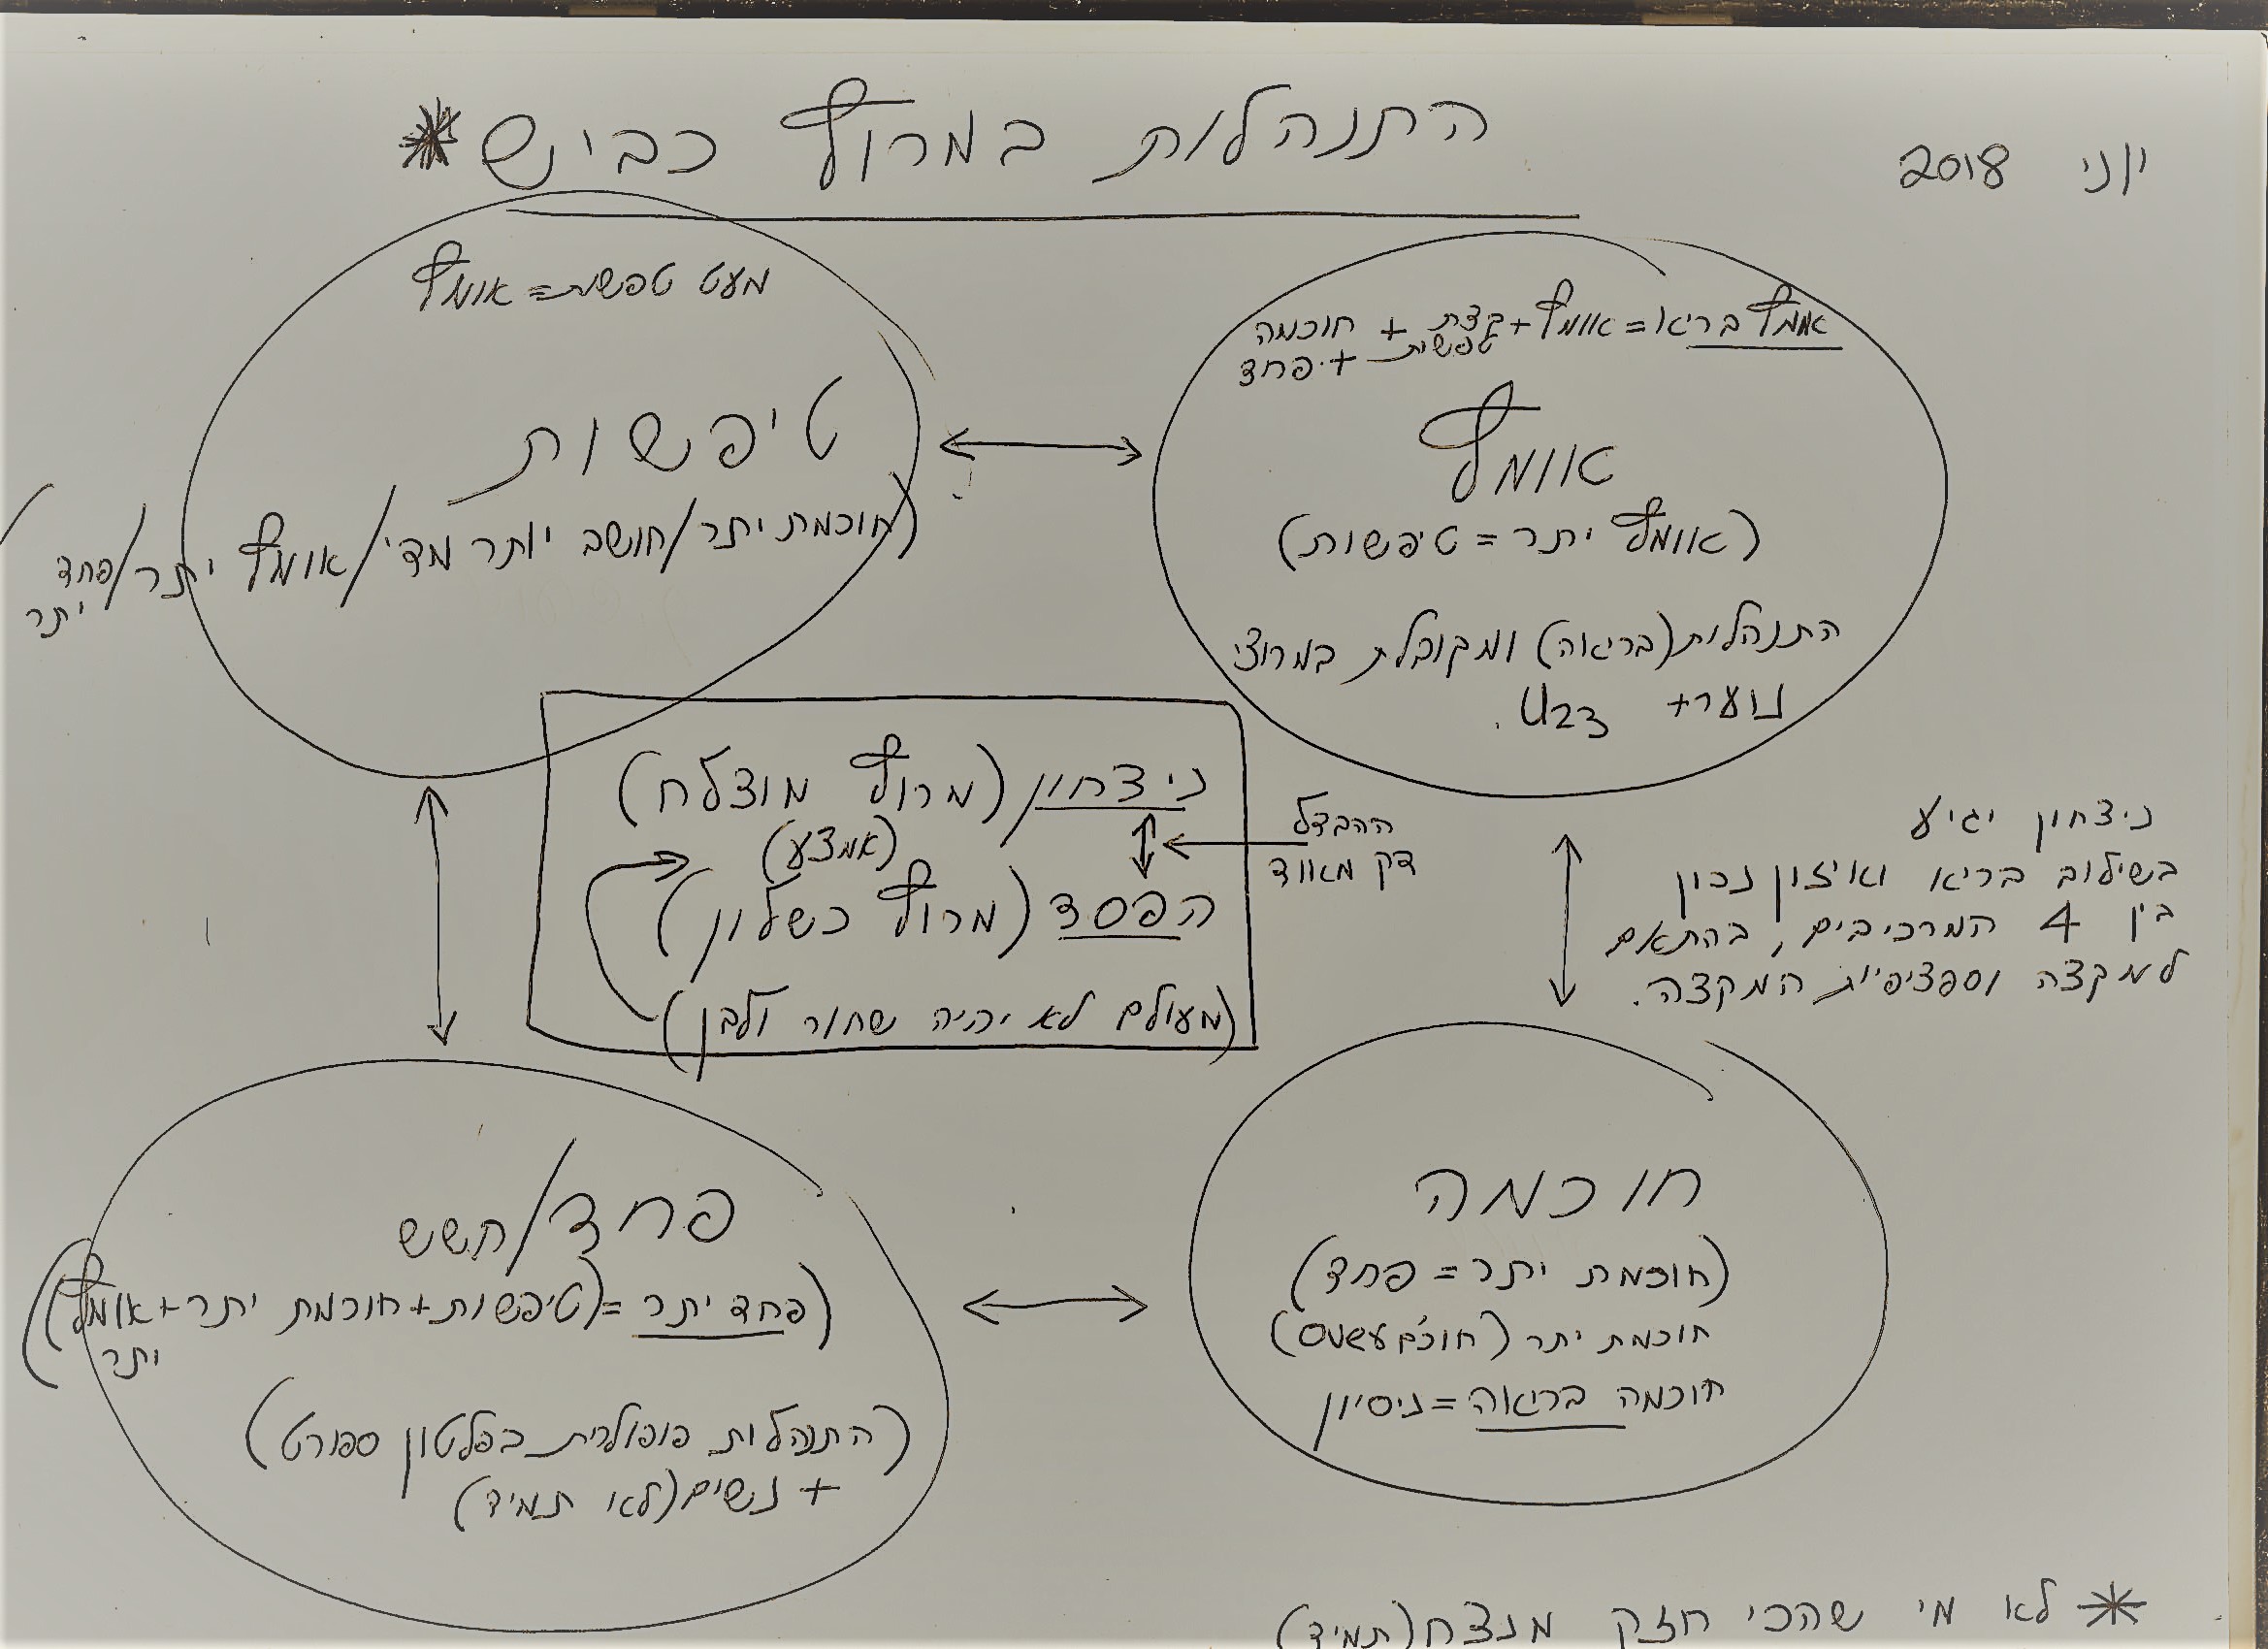 יוני 2018
התנהלות במרוץ כביש*
אומץ בריא=אומץ+קצת טפשות+ חוכמה
+פחד
אומץ
(אומץ יתר=טיפשות)
התנהלות(בריאה) ומקובלת במרוצי
נוער+ U23.
מעט טפשות=אומץ
טיפשות
(חוכמת יתר/חושב יותר מדי/אומץ יתר/פחד
יתר
ניצחון (מרוץ מוצלח)
(אמצע)
הפסד (מרוץ כשלון)
(מעולם לא יהיה שחור ולבן)
ההבדל
דק מאוד
ניצחון יגיע
בשילוב בריא ואיזון נכון
בין 4 המרכיבים, בהתאם
למקצה וספציפיות המקצה.
חוכמה
(חוכמת יתר=פחד)
חוכמת יתר (חוכם)
חוכמה בריאה=ניסיון
פחד/חשש
(פחד יתר=(טיפשות+חוכמת יתר+אומץ
יתר)
(התנהלות פופולרית בפלטון ספורט)
+ נשים(לא תמיד)
* לא מי שהכי חזק מנצח(תמיד)